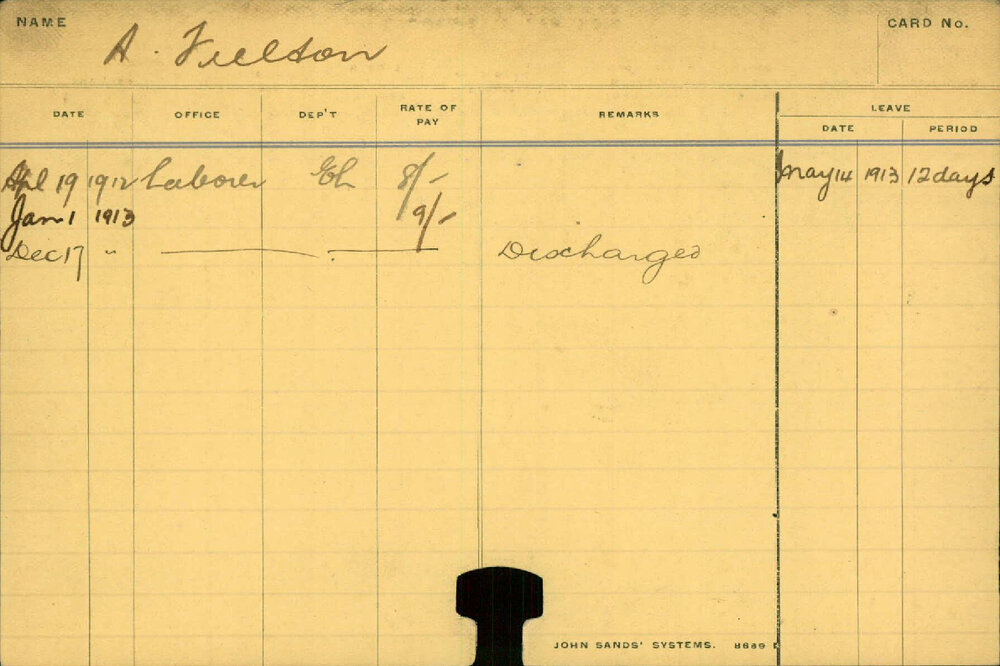 NAME
CARD No.
A.
DATE OFFICE DEP'T RATE OF PAY REMARKS LEAVE
DATE PERIOD
Apl 19 1912 Laborer 8/- May 14 1913 12 days
Jan 1 1913 9/-
Dec 17 " Discharged
JOHN SANDS' SYSTEMS. 8689